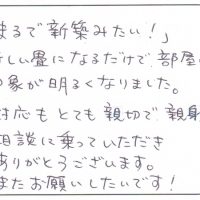 まるで新築みたい！」
しい畳になるだけで部屋
象が明るくなりました。
対応もとても親切で親身
相談に乗っていただき
ありがとうございます。
またお願いしたいです！